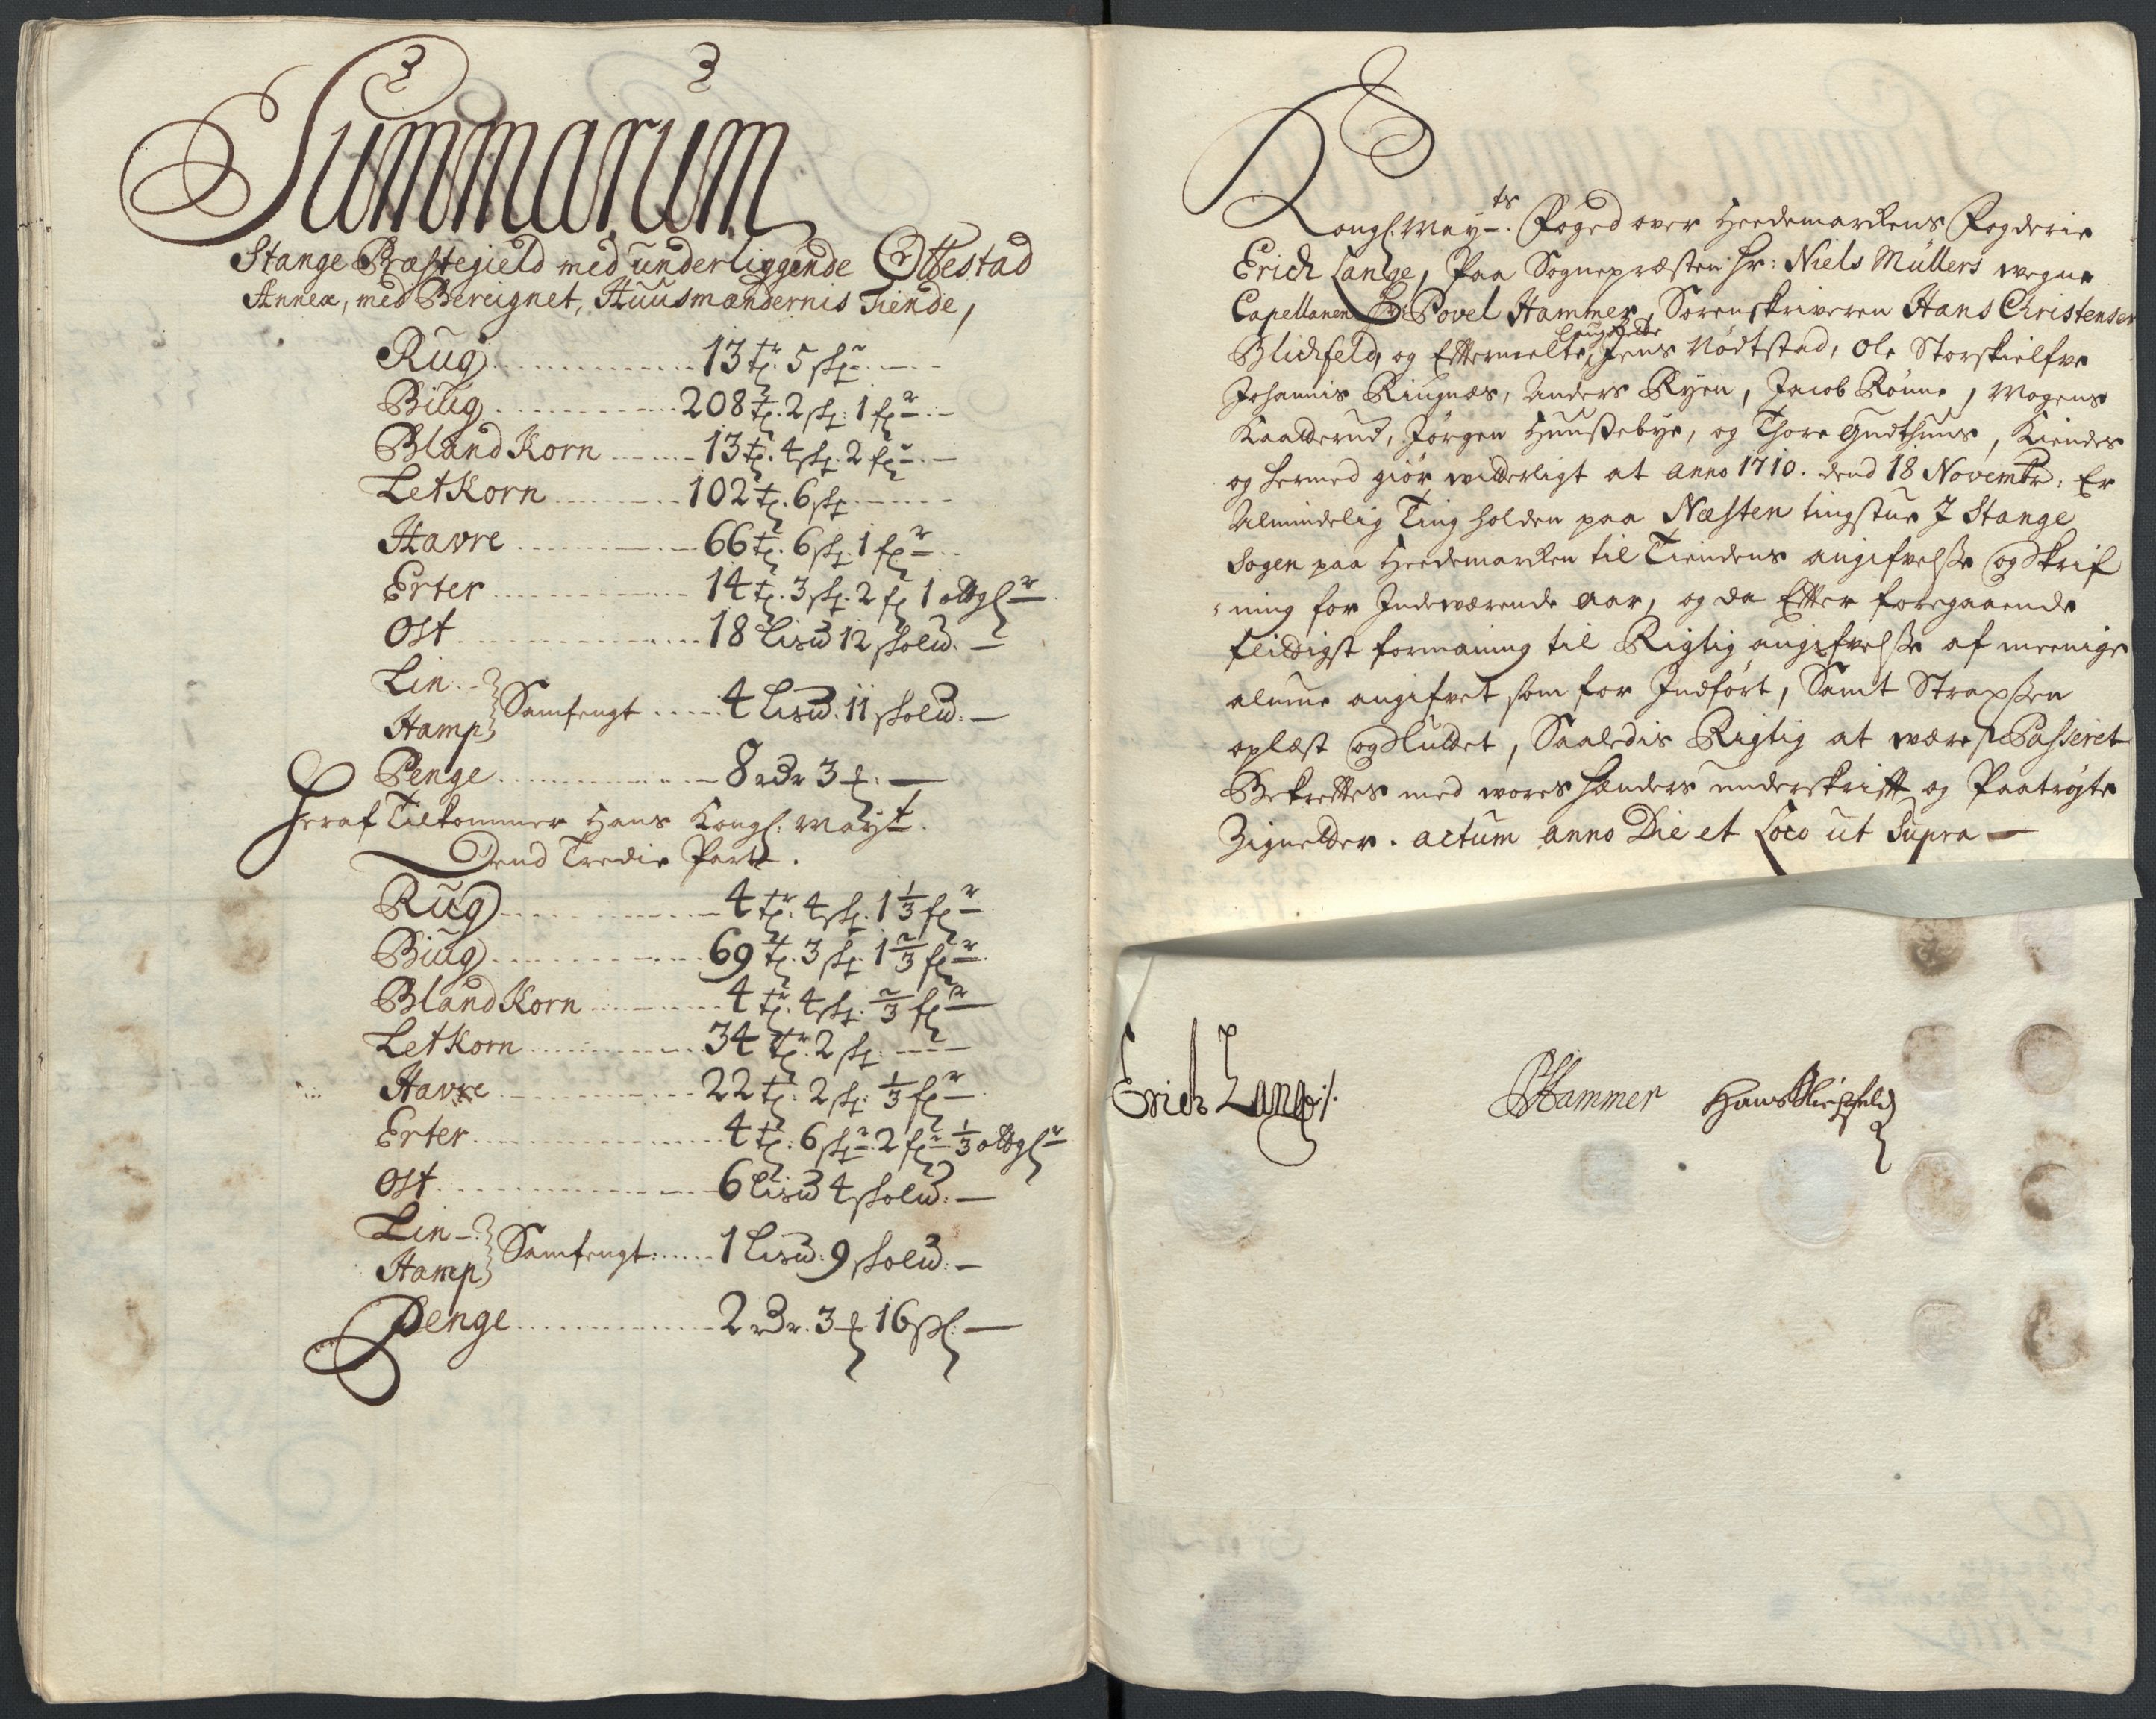 Summarum
Stange Præstegield med underliggende Ottestad
Annex, med Bereignet, Huusmændernis Tiende,
Rug 13 tr. 5 skp
Biug 208 tr. 2 skp. 1 fr
Bland Korn 13 tr. 4 skp. 2 fr
Let Korn 102 t. 6 skp
Havre 66 tr. 6 skp. 1 fr
Erter 14 t. 3 skp. 2 f 1 ottgl
Ost 18 Lisu 12 skolu.
Lin
Samfengt 4 Lisu. 11 skolu.
Hamp
Penge 8 rdr 3 f.
Heraf Tilkommer Hans Kongl: Mayt.
Dend Tredie Part.
Rug 4 tr. 4 skp. 1 1/3 fr
Biug 69 tr. 3 skp. 1 2/3 fr
Bland Korn 4 tr. 4 skp. 2/3 fr
Let Korn 34 tr. 2 skp.
Havre 22 t. 2 skp. 1/3 fr
Erter 4 t. 6 skp 2 fr 1/3 ottgl
Ost 6 Lisu 4 skolu.
Lin
Samfengt 1 Lisu. 9 skolu.
Hamp
Penge 2 rdr. 3 f 16 sk:
Kongl. Mayts. Foged over Heedemarkens Fogderie
Erich Lange, Paa Sognepræsten Hr: Niels Müllers wegne
Capellanen Hr: Povel Hammer, Sorenskriveren Hans Christensen
Blichfeld, og Eftermelte Laugrette Jens Nødtstad, Ole Storskielfve
Johannis Ringnæs, Anders Ryen, Jacob Rønne, Mogens
Kaatterud, Jørgen Huusebye, og Thore Gudthuus, Kiendes
og hermed giør witterligt at anno 1710. dend 18 Novembr: Er
Almindelig Ting holden paa Næsten tingstue I Stange
Sogen paa Heedemarken til Tiendens angifvelse og Skrif
ning for Indeværende Aar, og da Efter foregaaende
flittigst formaning til Rigtig angifvelse af meenige
almue angifvet som for Indført, Samt Straxsen
oplæst og Sluttet, Saaledis Rigtig at være Passeret
Bekreftes med wores hænders underskrift og Paatrøgte
Zigneter. actum anno Die et Loco ut Supra
Erich Lange
PHammer
Hans Blichfeld